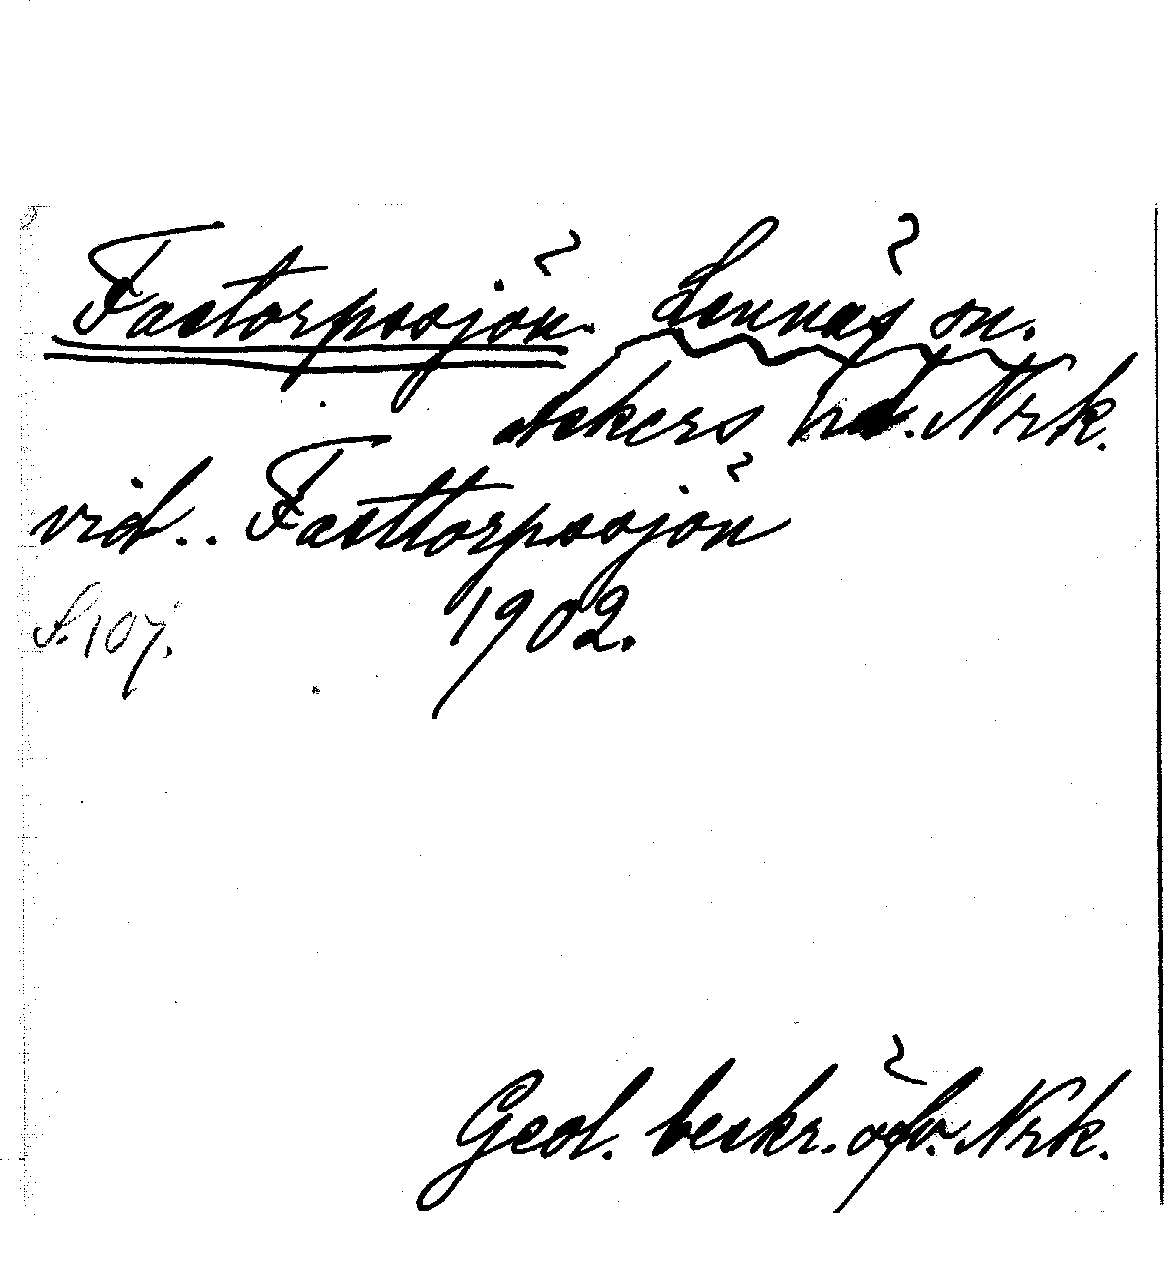 Fastorpssjön. Lännäs sn.
Askers hd. Nrk.
vid.. Fasttorpssjön
S. 107. 1902.
Geol. beskr. öfv. Nrk.